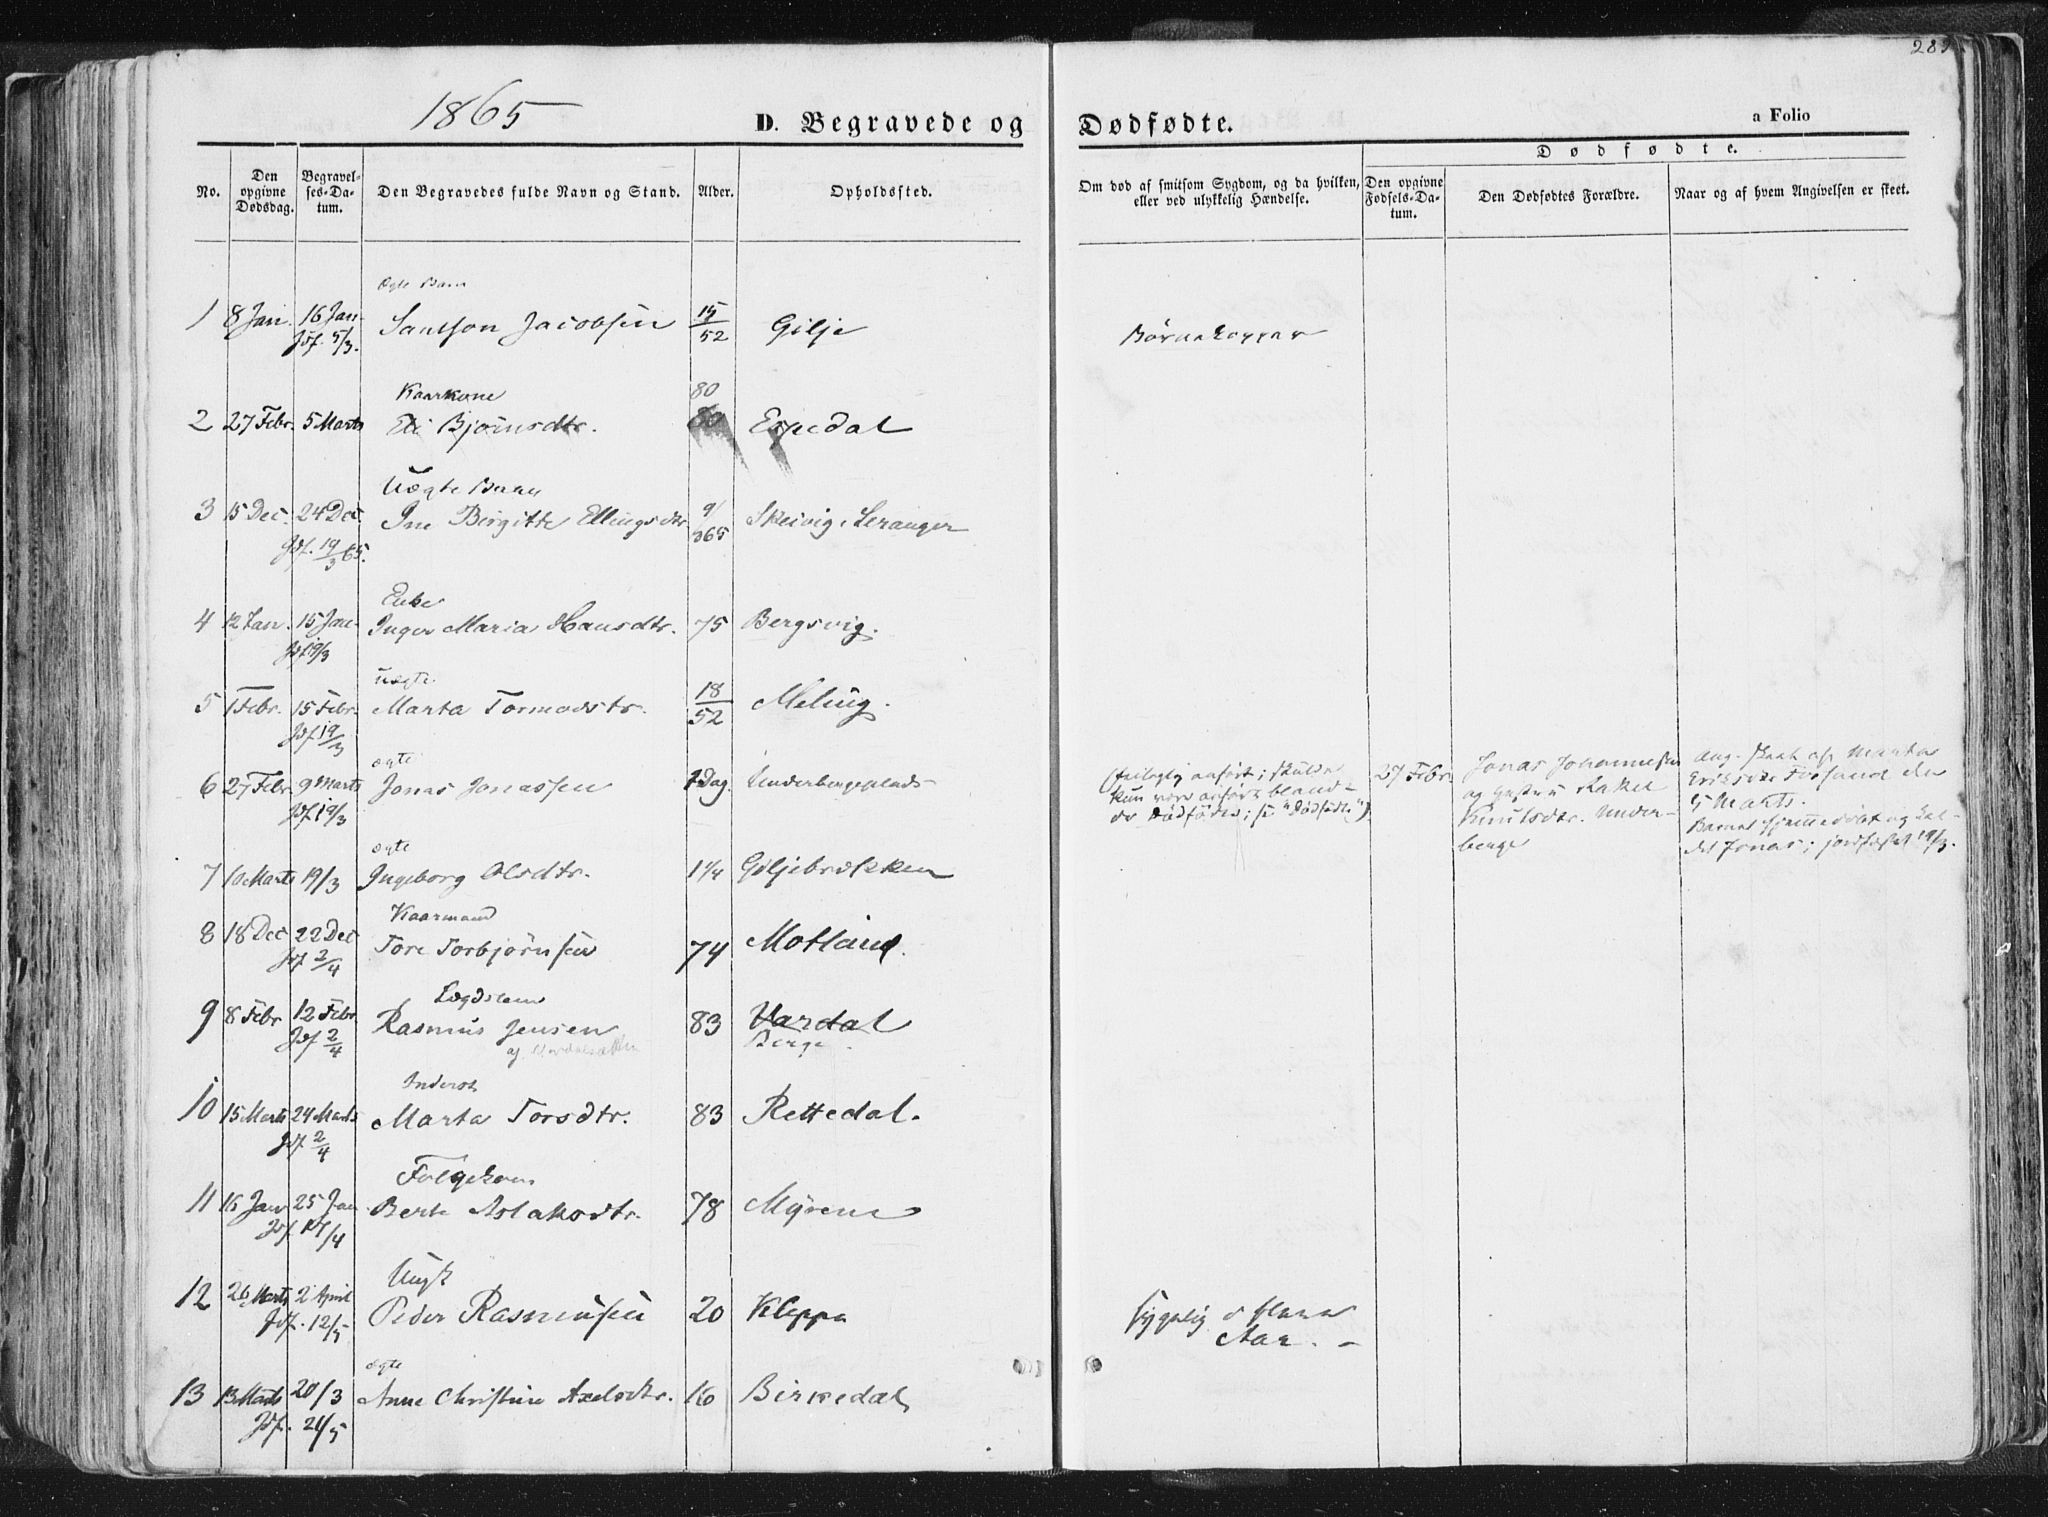 1865
D. Begravede og Dødfødte.
a Folio
No.
Den opgivne Dødsdag.
Begravelses-Datum.
Den Begravedes fulde Navn og Stand.
Alder.
Opholdssted.
Om død af smitsom Sygdom, og da hvilken, eller ved ulykkelig Hændelse.
Dødfødte.
Den opgivne Fødsels-Datum.
Den Dødfødtes Forældre.
Naar og af hvem Angivelsen er skeet.
Ægte Barn
1 8 Jan. 16 Jan. Jacobsen 15/52 Gilje Børnekopper
Jdf. 5/3.
Kaarkone 80
2 27 Febr. 5 Marts Eli Bjørnsdtr. 80 Espedal
Uægte Barn
3 15 Dec. 24 Dec. Ine Birgitte Ellingsdtr. 9/365 Skeivig, Leranger
Jdf. 19/3 65.
Enke
4 12 Jan. 15 Jan. Inger Maria Hansdtr. 75 Bergsvig.
Jdf 19/3
uægte
5 1 Febr. 15 Febr. Marta Tormodsdtr. 18/52 Meling.
Jdf 19/3
ægte
6 27 Febr 9 Marts Jonas Jonassen 1 Dag. Underbergeplads
Jdf 19/3
(feilagtig anført; skulde
kun være anført blandt
de Dødfødte; se "Dødfødte")
27 Febr.
Jonas Johannessen
og Hustru Rakel
Knutsdtr. Under-
berge
Ang. skeet af Marta
Eriksdtr Frøsund den
9 Marts.
Barnet hjemmedøbt og kal-
det Jonas; jordfæstet 19/3.
ægte
7 10 Marts 19/3 Ingeborg Olsdtr. 1 1/4 Giljebrekken
Kaarmand
8 18 Dec 22 Dec Tore Torbjørnsen 74 Motland.
Jdf 2/4
Lægdslem
9 8 Febr 12 Febr. Rasmus Jensen 83 Vardal
Jdf 2/4 Berge
Inderst
10 15 Marts 24 Marts Marta Torsdtr. 83 Rettedal.
Jdf 2/4
Folgekone
11 16 Jan 25 Jan Berte Aslaksdtr. 78 Myrene
Jdf. 17/4
Ungk
12 26 Marts 2 April Peder Rasmussen 20 Kleppa sygelig i flere
Jdf. 12/5 Aar. –
ægte
13 13 Marts 20/3 Anne Christine Axelsdtr. 16 Birkedal
Jdf. 21/5